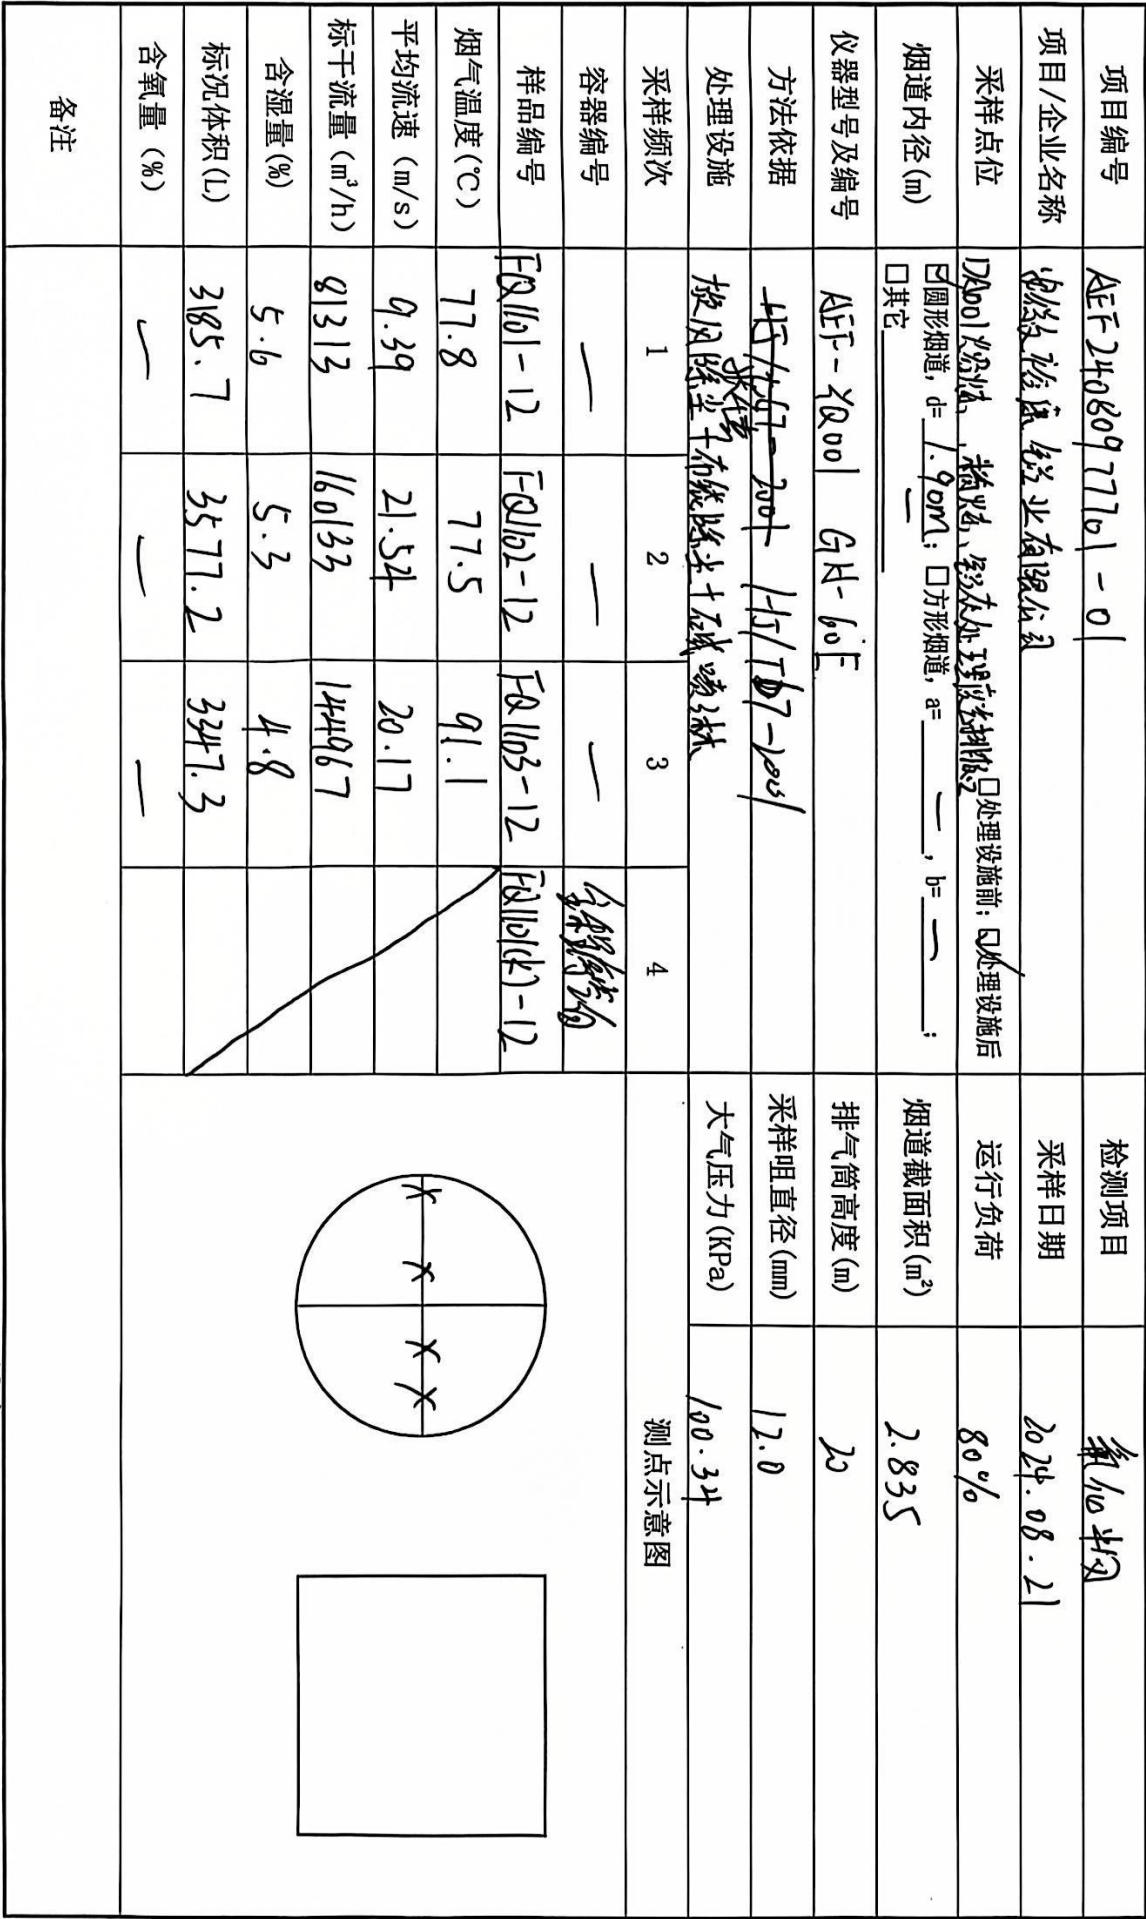 项目编号 AEF2408097701-01 检测项目
项目/企业名称 有限公司 采样日期 2024.08.21
采样点位 DA001 □处理设施前; ☑处理设施后 运行负荷 80%
烟道内径(m) ☑圆形烟道, d= 1.90m; □方形烟道, a= — , b= — ; 烟道截面积(m²) 2.835
□其它 —
仪器型号及编号 AEF-YQ001 GH-60E 排气筒高度(m) 20
方法依据 HJ/T67-2001 采样咀直径(mm) 12.0
处理设施 旋风除尘+布袋除尘+ 喷淋 大气压力(KPa) 100.34
采样频次 1 2 3 4 测点示意图
容器编号 — — —
样品编号 FQ1101-12 FQ1102-12 FQ1103-12 FQ1101(k)-12
烟气温度(℃) 77.8 77.5 91.1
平均流速(m/s) 9.39 21.54 20.17
标干流量(m³/h) 81313 160133 144967
含湿量(%) 5.6 5.3 4.8
标况体积(L) 3185.7 3577.2 3347.3
含氧量(%) — — —
备注